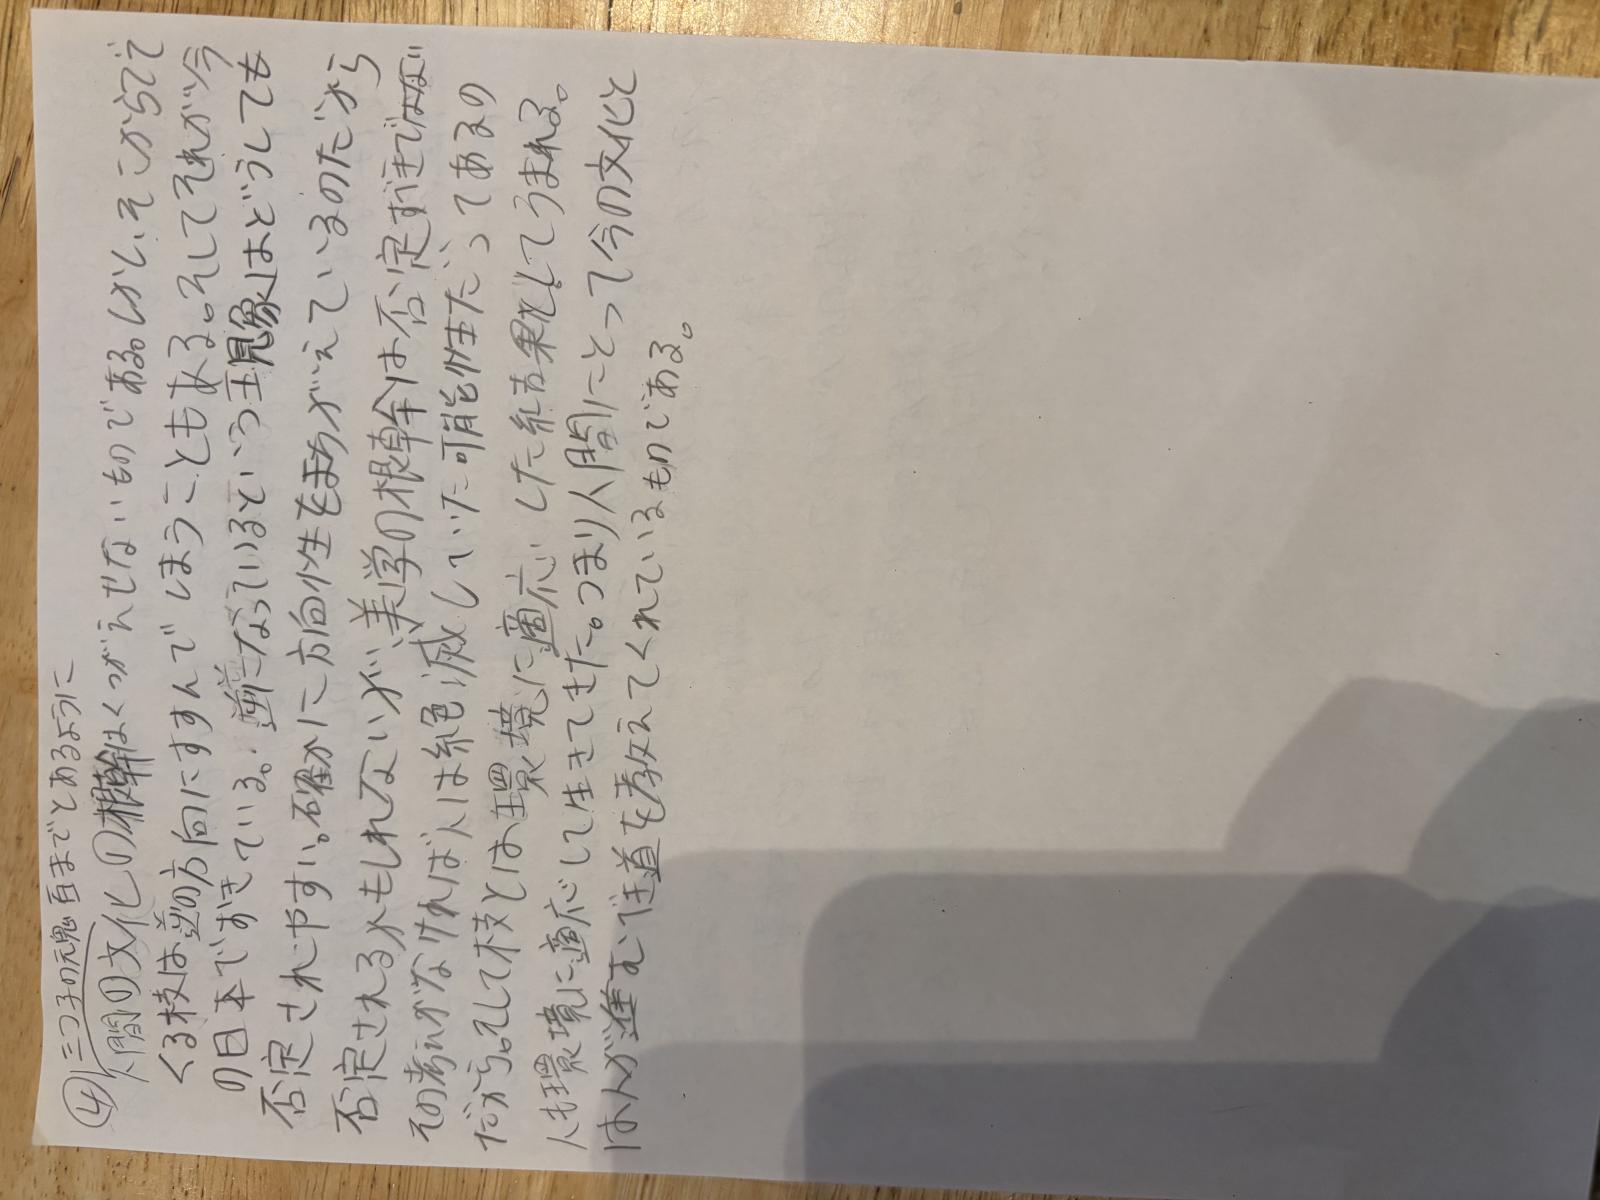 ④ 三つ子の魂百までとあるように
人間の文化の根幹はくつがえせないものである。しかし、そこからでて
くる枝は逆の方向にすすんでしまうこともある。そしてそれが今
の日本でおきている。逆になっているという現象はどうしても
否定されやすい。確かに方向性をまちがえているのだから
否定されるかもしれないが、美学の根幹は否定すべきではない
その考えがなければ人は絶滅していた可能性だってあるの
だから。そして枝とは環境に適応した結果としてうまれる。
人も環境に適応して生きてきた。つまり人間にとって今の文化と
は人が進むべき道を教えてくれているものである。